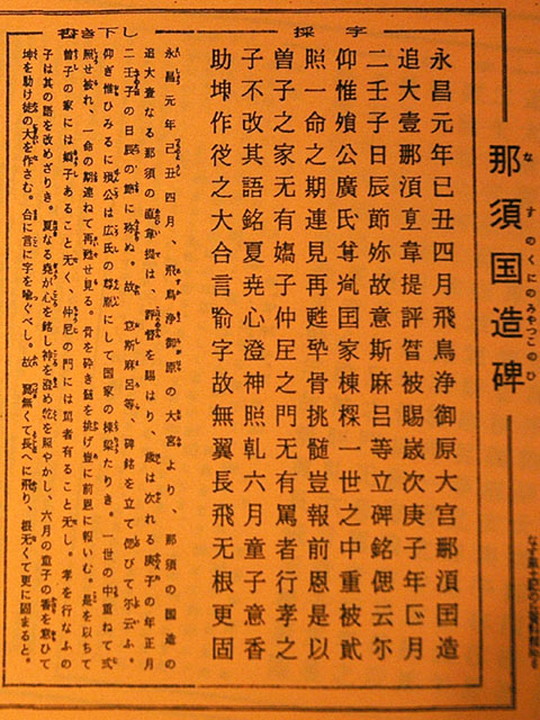 那須国造碑
なすのくにのみやつこのひ
採字
永昌元年己丑四月飛鳥浄御原大宮鄁湏国造
追大壹鄁湏直韋提評督被賜歳次庚子年正月
二壬子日辰節殄故意斯麻呂等立碑銘偲云尓
仰惟殞公廣氏尊胤国家棟樑一世之中重被貳
照一命之期連見再甦砕骨挑髄豈報前恩是以
曽子之家无有嬌子仲尼之門无有罵者行孝之
子不改其語銘夏尭心澄神照乹六月童子意香
助坤作徒之大合言喩字故無翼長飛无根更固
書き下し
永昌元年己丑四月、飛鳥浄御原の大宮より、那須の国造の
追大壹なる那須の直韋提は、評督を賜はり、歳は次れる庚子の年正月
二壬子の日辰の節に殄ぬ。故、意斯麻呂等、碑銘を立て偲びて尓云ふ。
仰ぎ惟ひみるに殞公は広氏の尊胤にして国家の棟梁たりき。一世の中重ねて弐
照せ被れ、一命の期連ねて再甦せ見る。骨を砕き髄を挑げ豈に前恩に報いむ。是を以ちて
曽子の家には嬌子あること无く、仲尼の門には罵者有ること无し。孝を行なふの
子は其の語を改めざりき。夏なる尭が心を銘し神を澄め乾を照やかし、六月の童子の香を意ひて
坤を助け徒の大を作さむ。合に言に字を喩ぐべし。故、翼無くて長へに飛り、根无くて更に固まると。